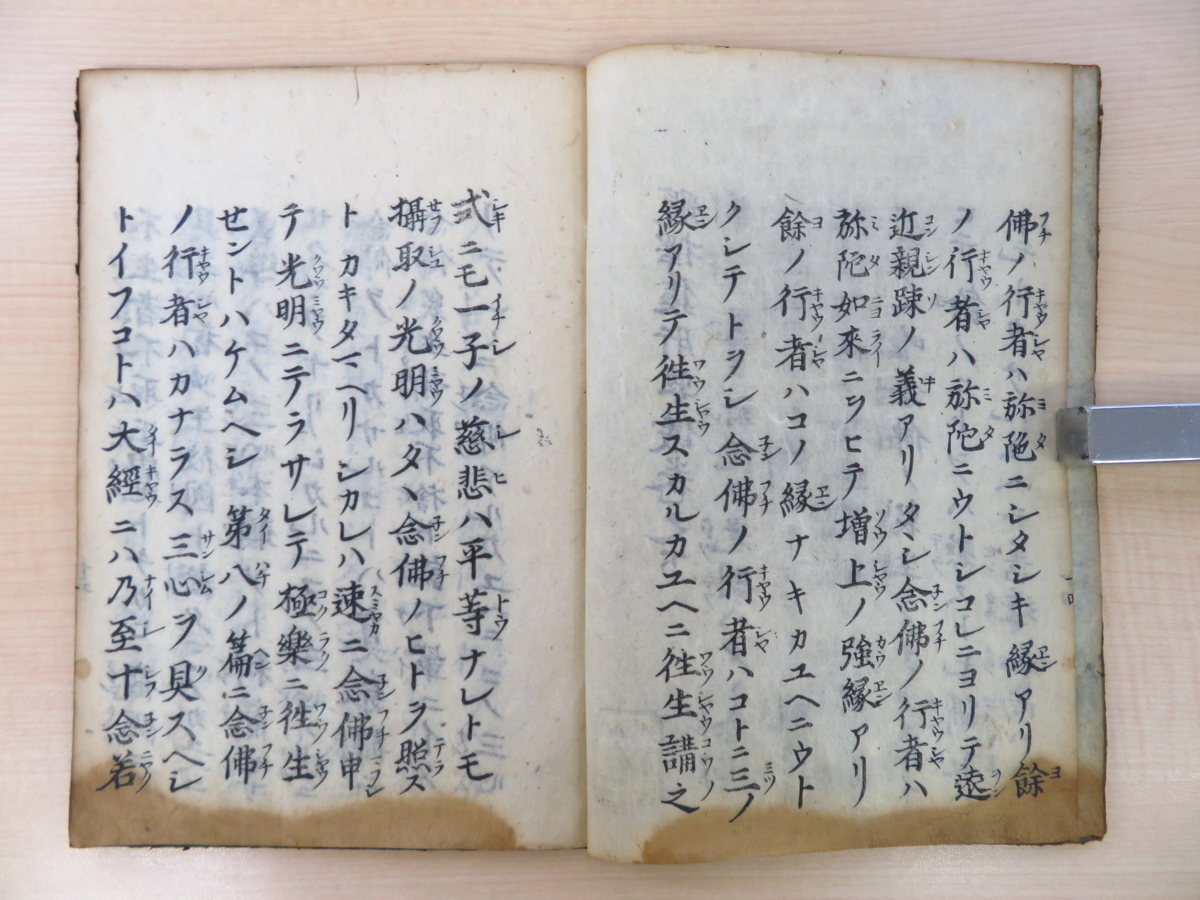 佛ノ行者ハ弥陁ニシタシキ縁アリ餘
ノ行者ハ弥陀ニウトシコレニヨリテ遠
近親踈ノ義アリタヽシ念佛ノ行者ハ
弥陀如來ニヲヒテ増上ノ強縁アリ
餘ノ行者ハコノ縁ナキカユヘニウト
クシテトヲシ念佛ノ行者ハコトニ三ノ
縁アリテ徃生スカルカユヘニ徃生講之
式ニモ一子ノ慈悲ハ平等ナレトモ
攝取ノ光明ハタヽ念佛ノヒトヲ照ス
トカキタマヘリシカレハ速ニ念佛申
テ光明ニテラサレテ極樂ニ徃生
せントハケムヘシ第八ノ篇ニ念佛
ノ行者ハカナラス三心ヲ具スヘシ
トイフコトハ大經ニハ乃至十念若